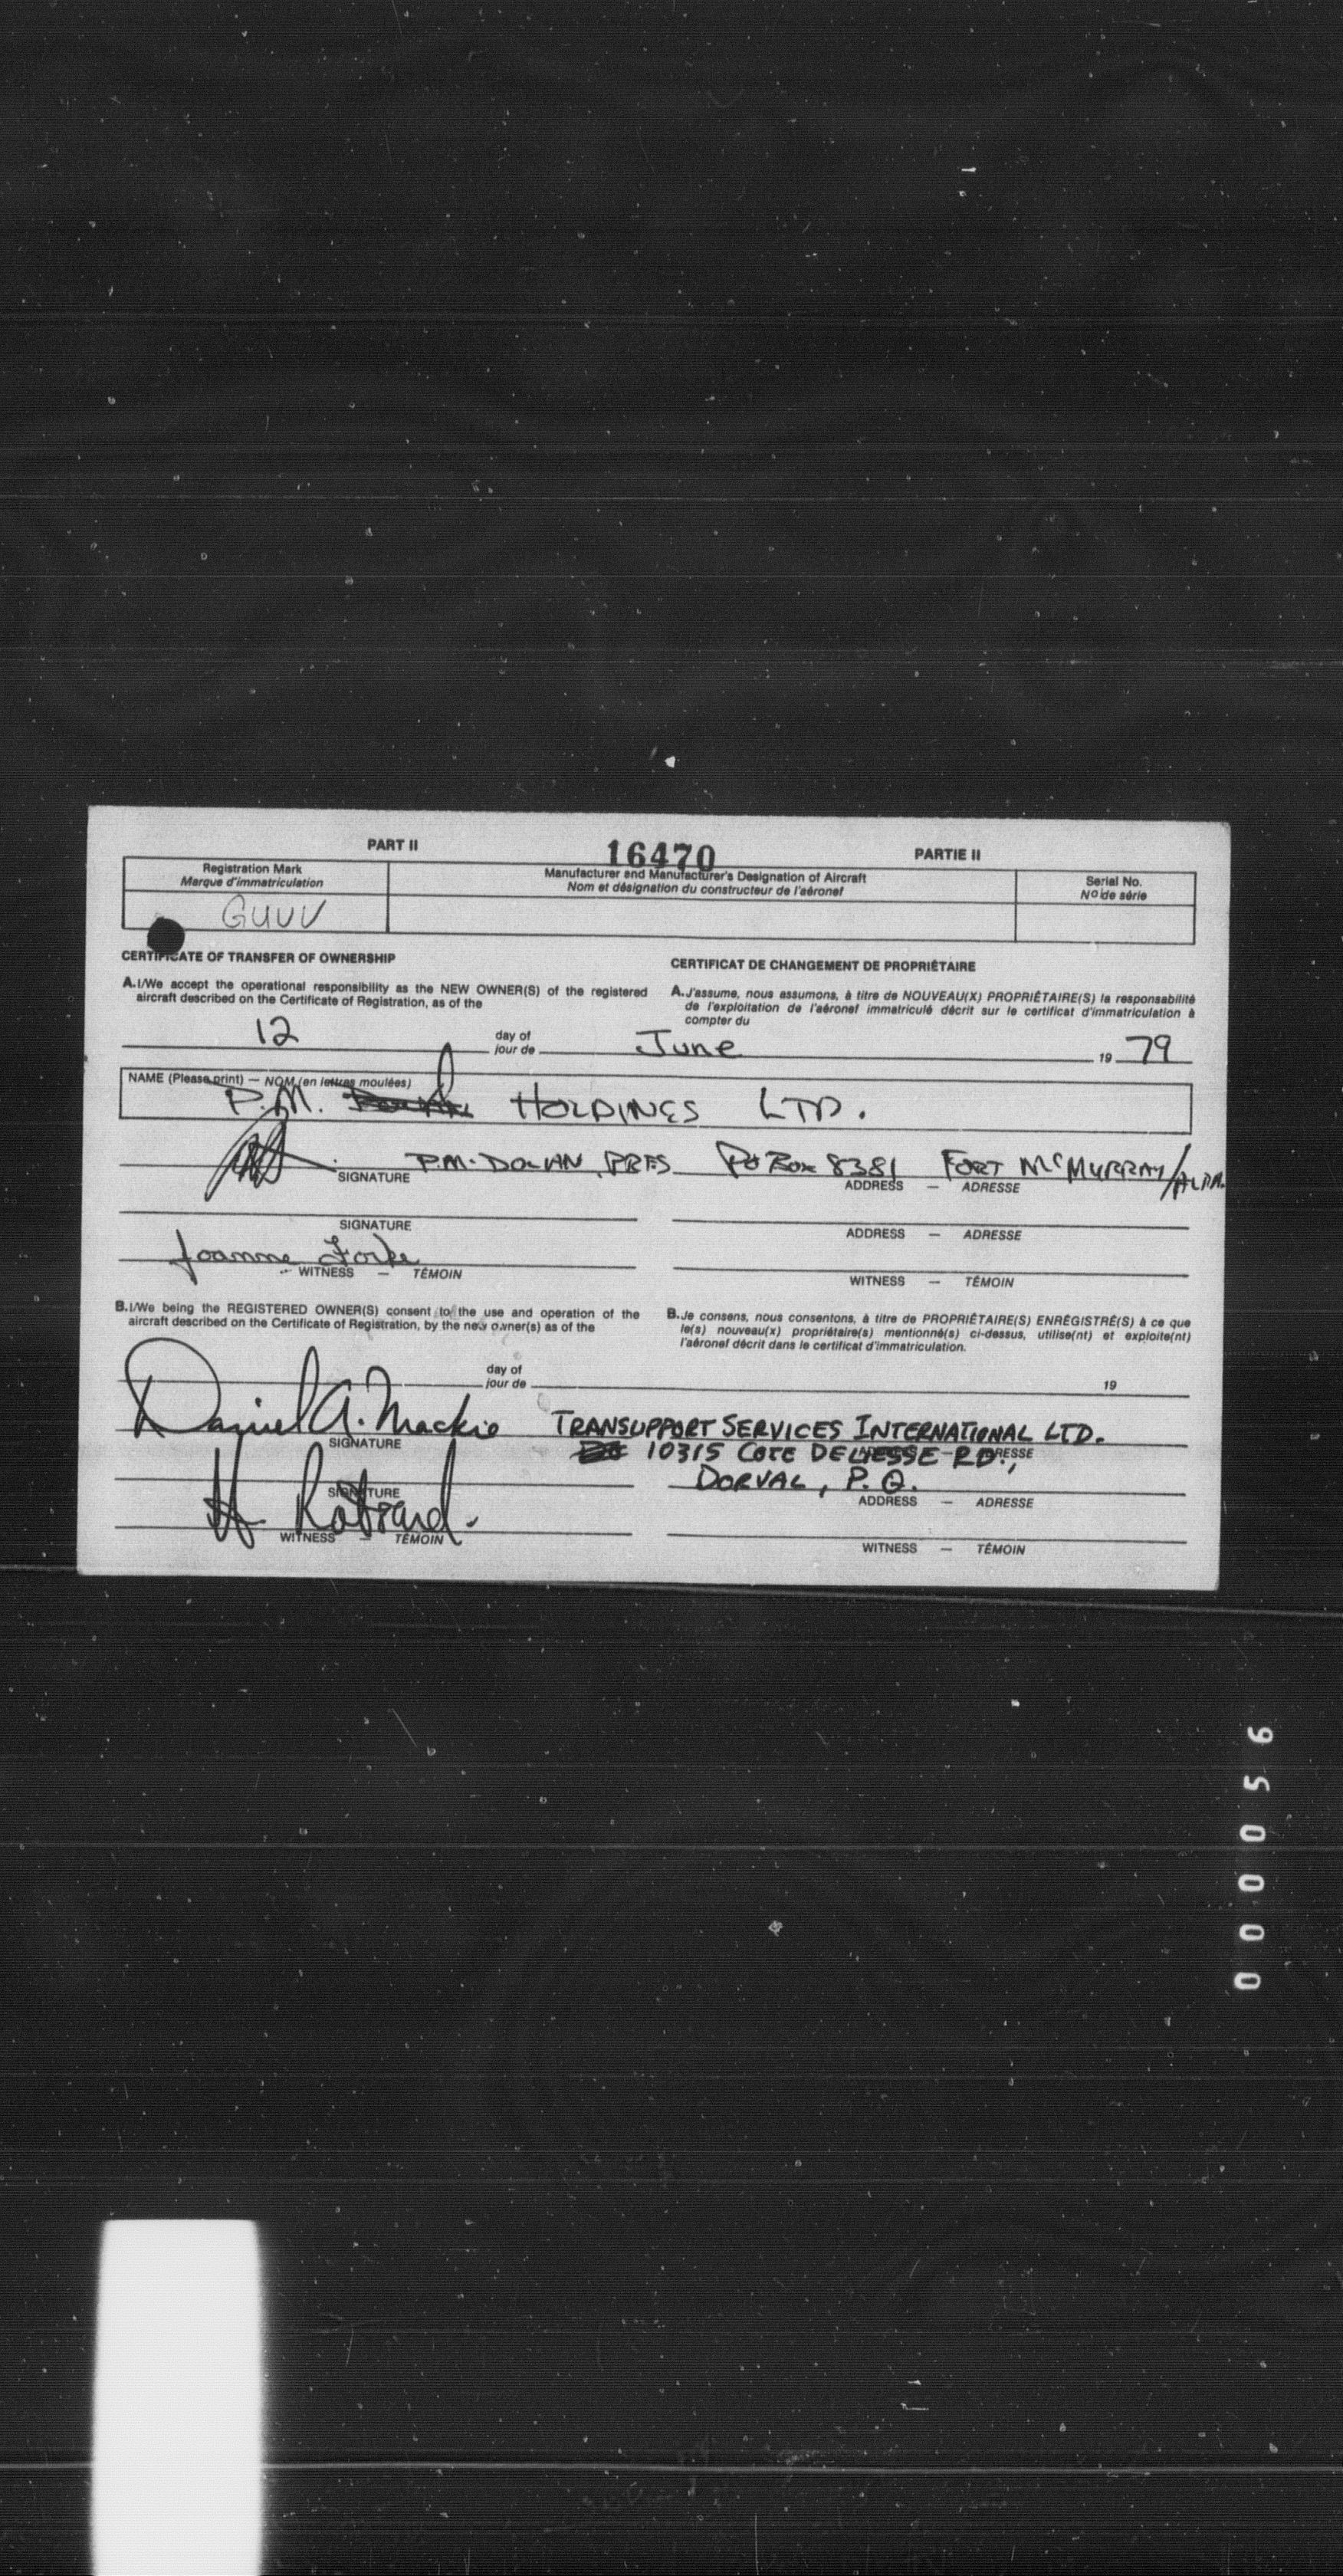 PART II 16470 PARTIE II
Registration Mark
Marque d'immatriculation
Manufacturer and Manufacturer's Designation of Aircraft
Nom et désignation du constructeur de l'aéronef
Serial No.
Nº de série
GUVV
CERTIFICATE OF TRANSFER OF OWNERSHIP
A. I/We accept the operational responsibility as the NEW OWNER(S) of the registered
aircraft described on the Certificate of Registration, as of the
CERTIFICAT DE CHANGEMENT DE PROPRIÉTAIRE
A. J'assume, nous assumons, à titre de NOUVEAU(X) PROPRIÉTAIRE(S) la responsabilité
de l'exploitation de l'aéronef immatriculé décrit sur le certificat d'immatriculation à
compter du
12 day of June 19 79
jour de
NAME (Please print) — NOM (en lettres moulées)
P.M. HOLDINGS LTD.
P.M. DOLAN, PRES PO BOX 8381 FORT MCMURRAY/ALTA.
SIGNATURE ADDRESS — ADRESSE
SIGNATURE ADDRESS — ADRESSE
Joanne
WITNESS — TÉMOIN WITNESS — TÉMOIN
B. I/We being the REGISTERED OWNER(S) consent to the use and operation of the
aircraft described on the Certificate of Registration, by the new owner(s) as of the
B. Je consens, nous consentons, à titre de PROPRIÉTAIRE(S) ENRÉGISTRÉ(S) à ce que
le(s) nouveau(x) propriétaire(s) mentionné(s) ci-dessus, utilise(nt) et exploite(nt)
l'aéronef décrit dans le certificat d'immatriculation.
day of
jour de 19
Daniel A. Mackie TRANSUPPORT SERVICES INTERNATIONAL LTD.
SIGNATURE 10315 COTE DELIESSE RD.,
DORVAL, P.Q.
SIGNATURE ADDRESS — ADRESSE
H.
WITNESS — TÉMOIN WITNESS — TÉMOIN
000056